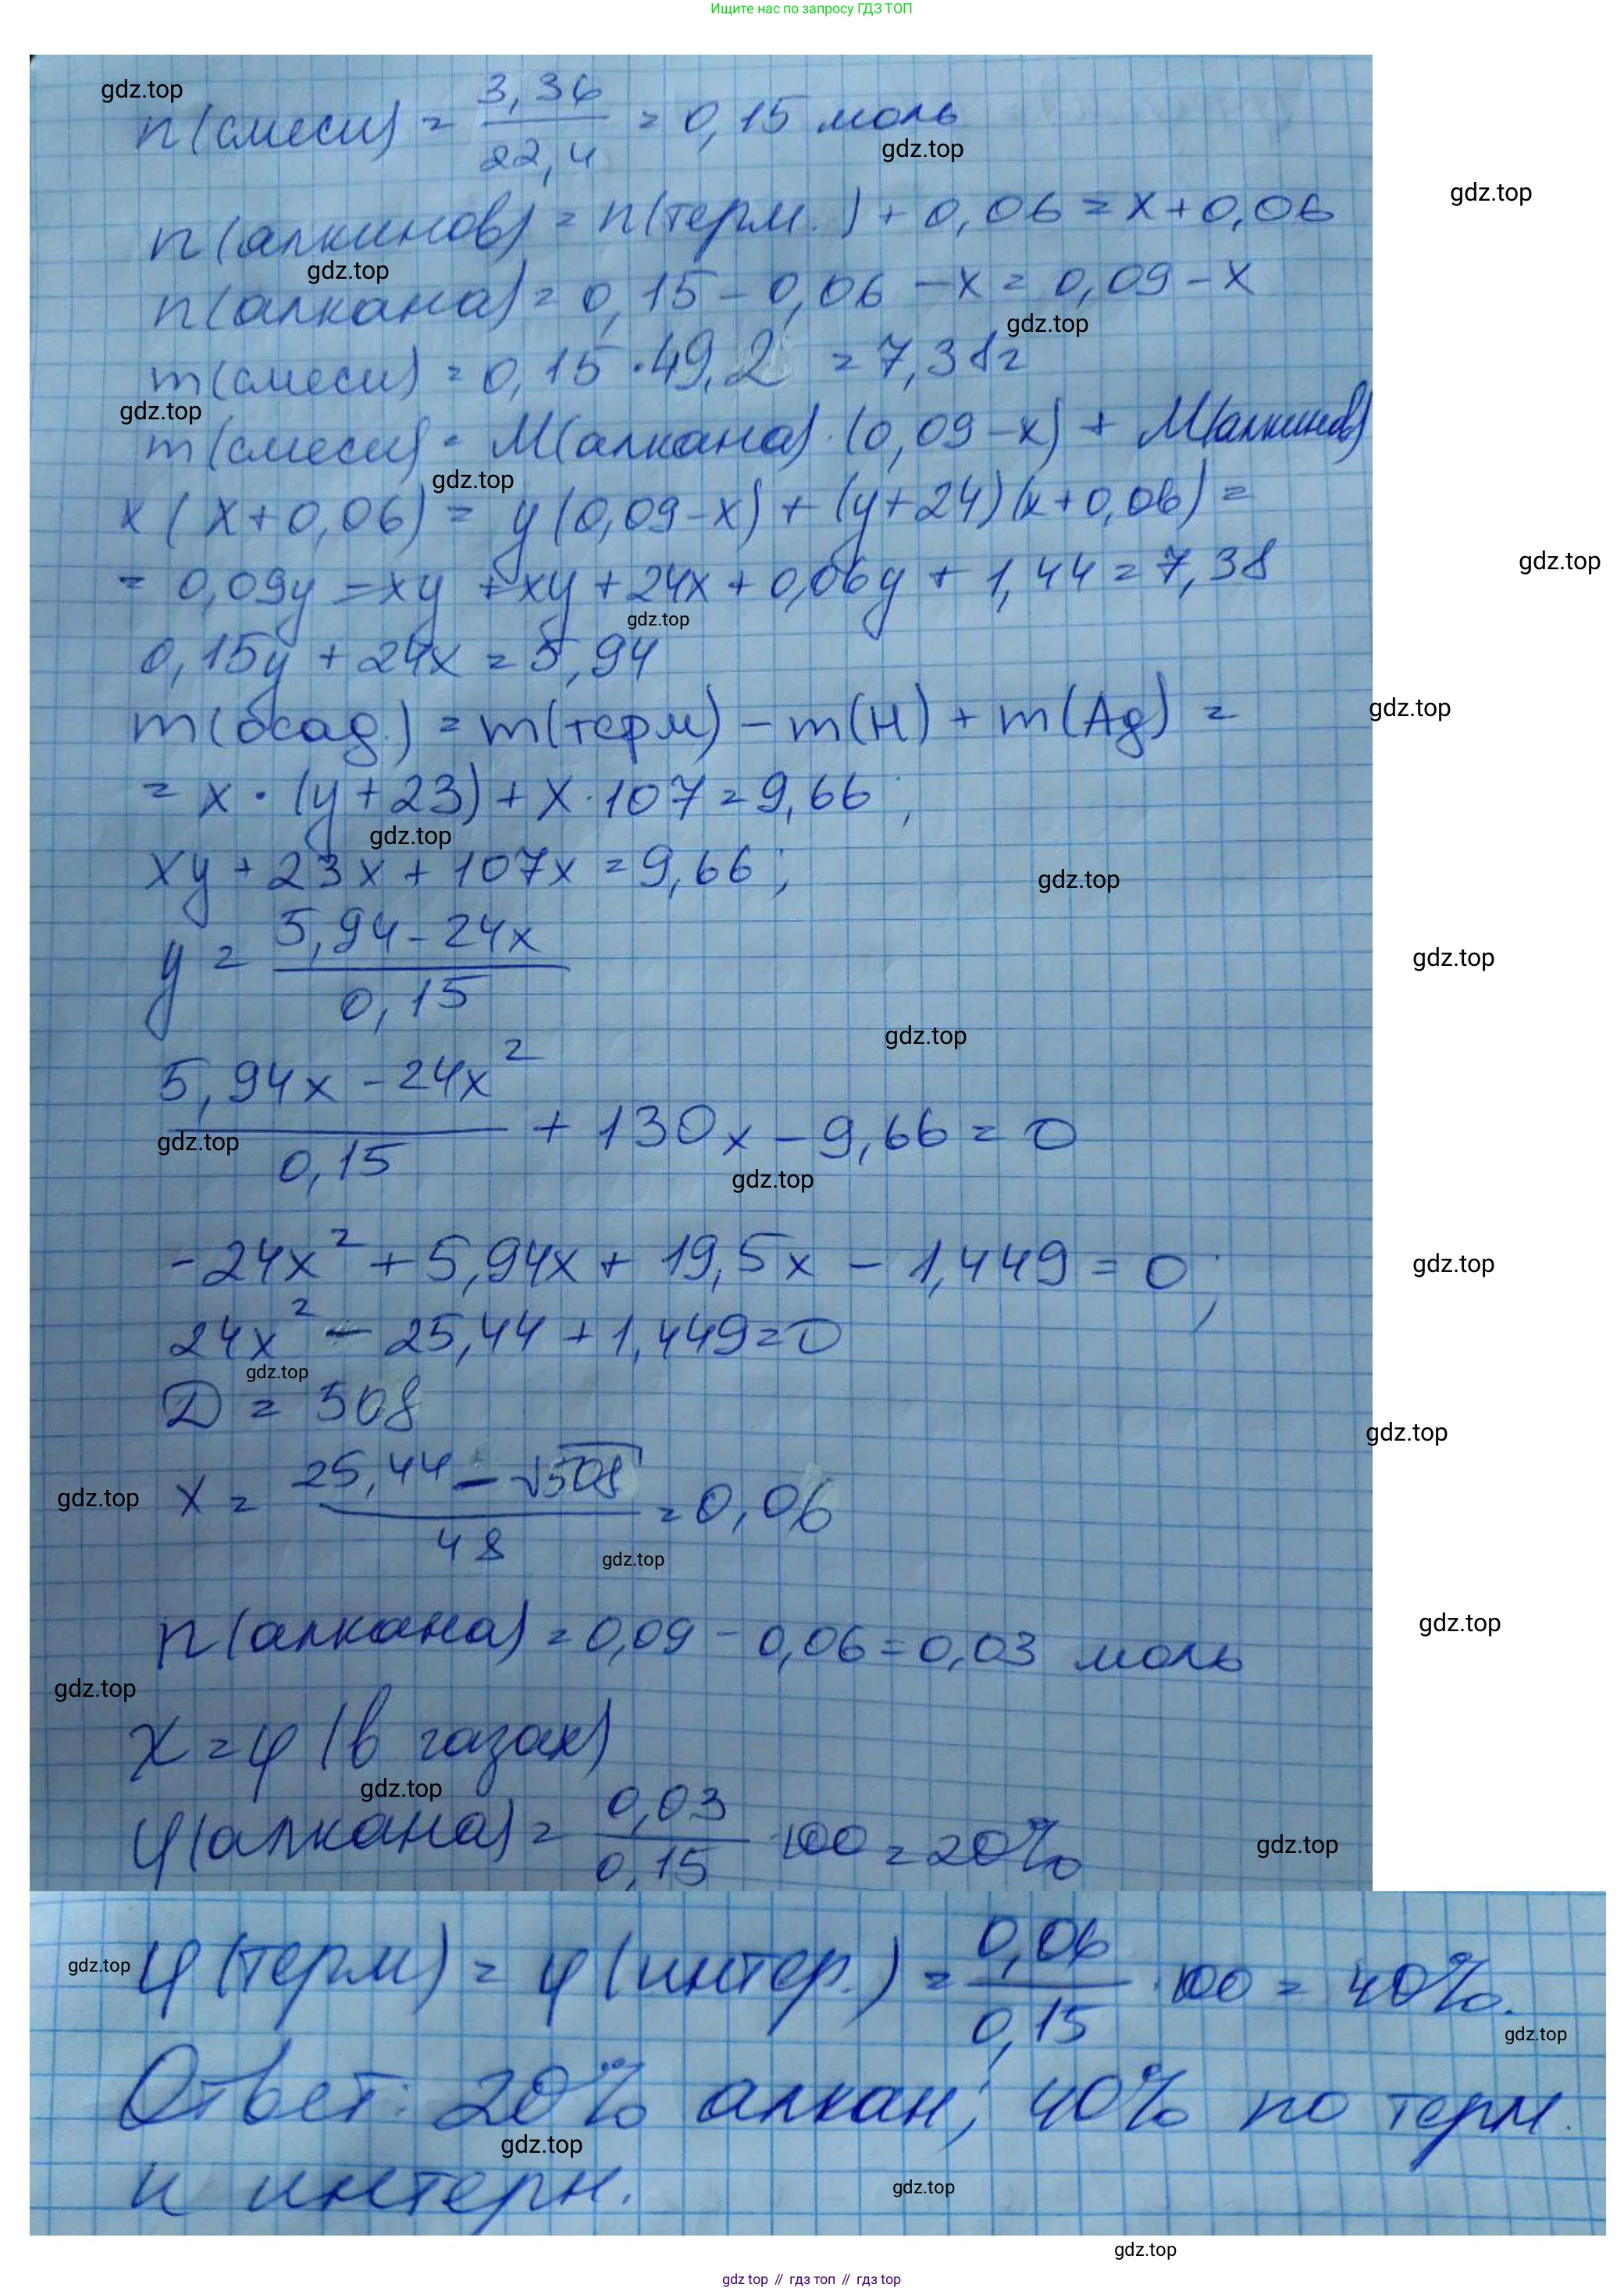 Ищите нас по запросу ГДЗ ТОП
gdz.top
n(смеси) = 3,36 / 22,4 = 0,15 моль
gdz.top
gdz.top
n(алкинов) = n(терм.) + 0,06 = x + 0,06
gdz.top
n(алкана) = 0,15 - 0,06 - x = 0,09 - x
gdz.top
m(смеси) = 0,15 · 49,2 = 7,38 г
gdz.top
m(смеси) = M(алкана) · (0,09 - x) + M(алкинов)
gdz.top
x (x + 0,06) = y(0,09 - x) + (y + 24)(x + 0,06) =
gdz.top
= 0,09y - xy + xy + 24x + 0,06y + 1,44 = 7,38
gdz.top
0,15y + 24x = 5,94
gdz.top
m(осад.) = m(терм) - m(H) + m(Ag) =
= x · (y + 23) + x · 107 = 9,66 ;
gdz.top
xy + 23x + 107x = 9,66 ;
gdz.top
y = 5,94 - 24x / 0,15
gdz.top
gdz.top
5,94x - 24x² / 0,15 + 130x - 9,66 = 0
gdz.top
gdz.top
-24x² + 5,94x + 19,5x - 1,449 = 0 ;
gdz.top
24x² - 25,44 + 1,449 = 0
gdz.top
D = 508
gdz.top
gdz.top
x = 25,44 - √508 / 48 = 0,06
gdz.top
n(алкана) = 0,09 - 0,06 = 0,03 моль
gdz.top
gdz.top
χ = φ (в газах)
gdz.top
φ(алкана) = 0,03 / 0,15 · 100 = 20%
gdz.top
gdz.top
φ(терм) = φ(интер.) = 0,06 / 0,15 · 100 = 40%.
gdz.top
Ответ: 20% алкан; 40% по терм.
gdz.top
и интерн.
gdz.top
gdz.top
gdz top // гдз топ // гдз top